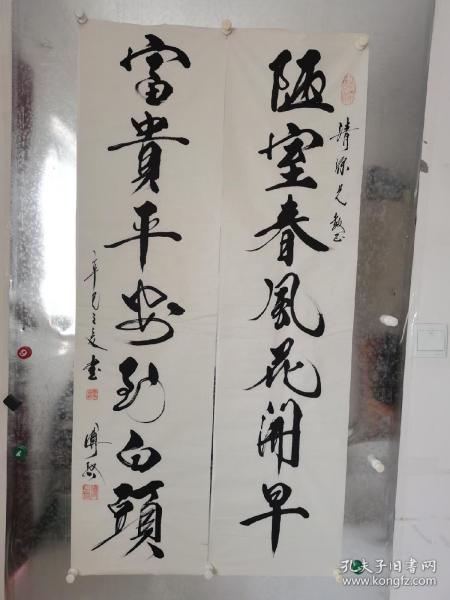 陋室春風花開早
兄教正
富貴平安到白頭
辛巳之夏 書
孔夫子旧书网
kongfz.com